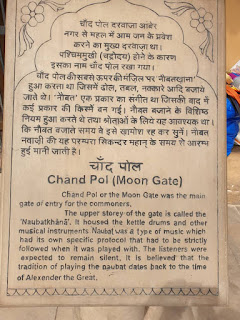 चाँद पोल दरवाजा आंबेर
नगर से महल में आम जन के प्रवेश
करने का मुख्य दरवाजा था।
पश्चिममुखी (चद्रोदय) होने के कारण
इसका नाम चाँद पोल रखा गया।
चाँद पोल की सबसे ऊपर की मंजिल पर 'नौबतखाना'
हुआ करता था जिसमें ढोल, तबला, नक्कारे आदि बजाये
जाते थे। 'नौबत' एक प्रकार का संगीत था जिसकी बाद में
कई प्रकार की किस्में बन गई। नौबत बजाने के विशिष्ठ
नियम हुआ करते थे तथा श्रोताओं के लिये यह आवश्यक था।
कि नौबत बजाते समय वे इसे खामोश रह कर सुनें। नौबत
नवाजी की यह परम्परा सिकन्दर महान् के समय से आरम्भ
हुई मानी जाती है।
चाँद पोल
Chand Pol (Moon Gate)
Chand Pol or the Moon Gate was the main
gate of entry for the commoners.
The upper storey of the gate is called the
'Naubatkhānā'. It housed the kettle drums and other
musical instruments. Naubat was a type of music which
had its own specific protocol that had to be strictly
followed when it was played with. The listeners were
expected to remain silent. It is believed that the
tradition of playing the naubat dates back to the time
of Alexender the Great.